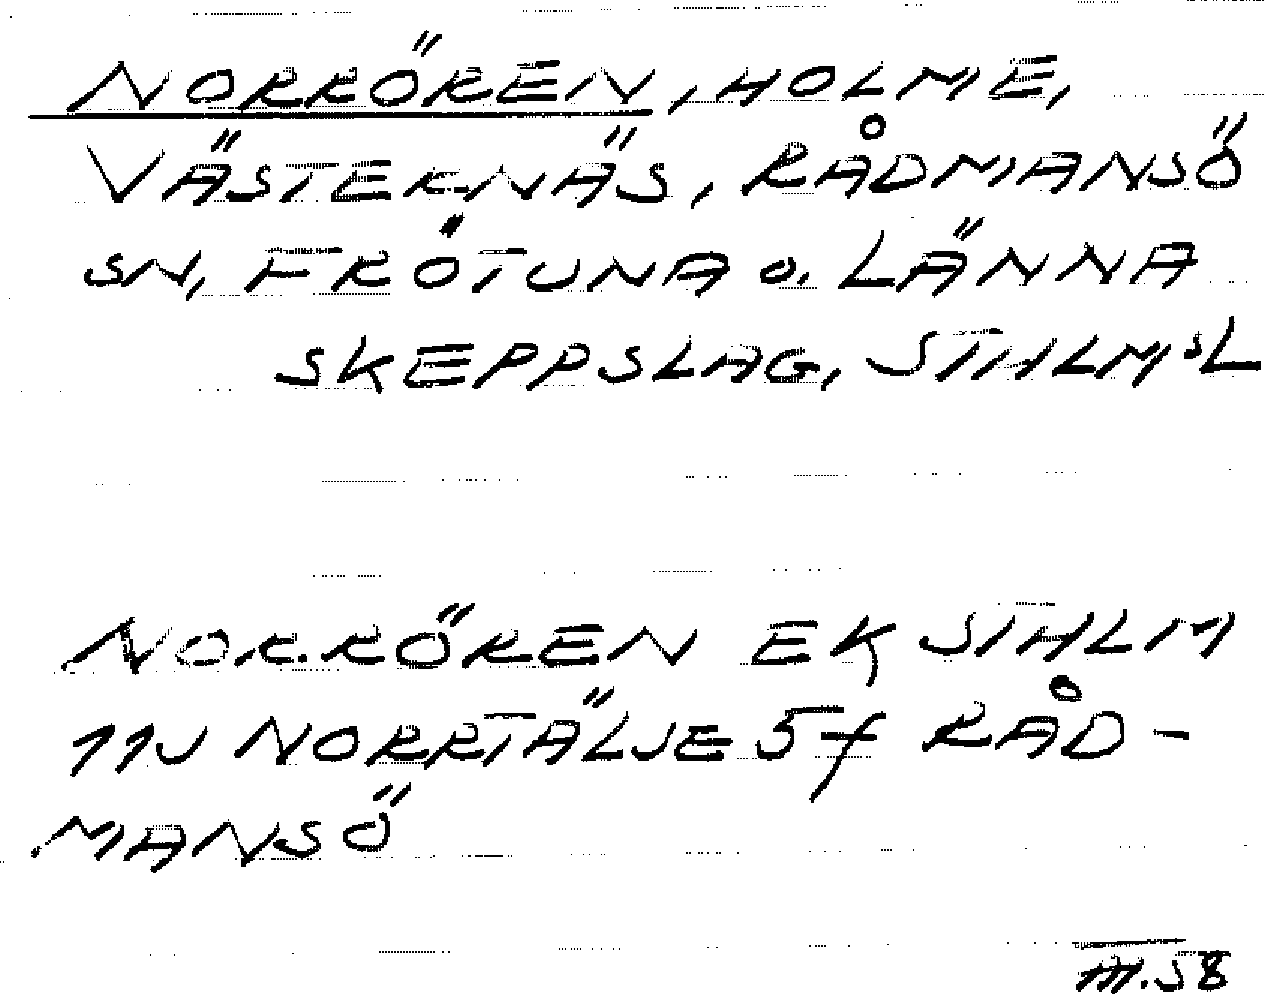 NORRÖREN, HOLME,
VÄSTERNÄS, RÅDMANSÖ
SN, FRÖTUNA o. LÄNNA
SKEPPSLAG, STHLMSL
NORRÖREN EK STHLM
11J NORRTÄLJE 5f RÅD-
MANSÖ
III.58